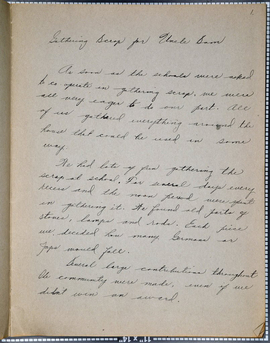 1
Gathering Scrap for Uncle Sam
As soon as the schools were asked
to co operate in gathering scrap, we were
all very eager to do our part. All
of us gathered everything around the
house that could be used in some
way.
We had lots of fun gathering the
scrap at school. For several days every
recess and the noon period were spent
in gathering it. We found old parts of
stoves, lamps and rods. Each piece
we decided how many Germans or
Japs would fall.
Several large contributions throughout
the community were made, even if we
didn't win an award.